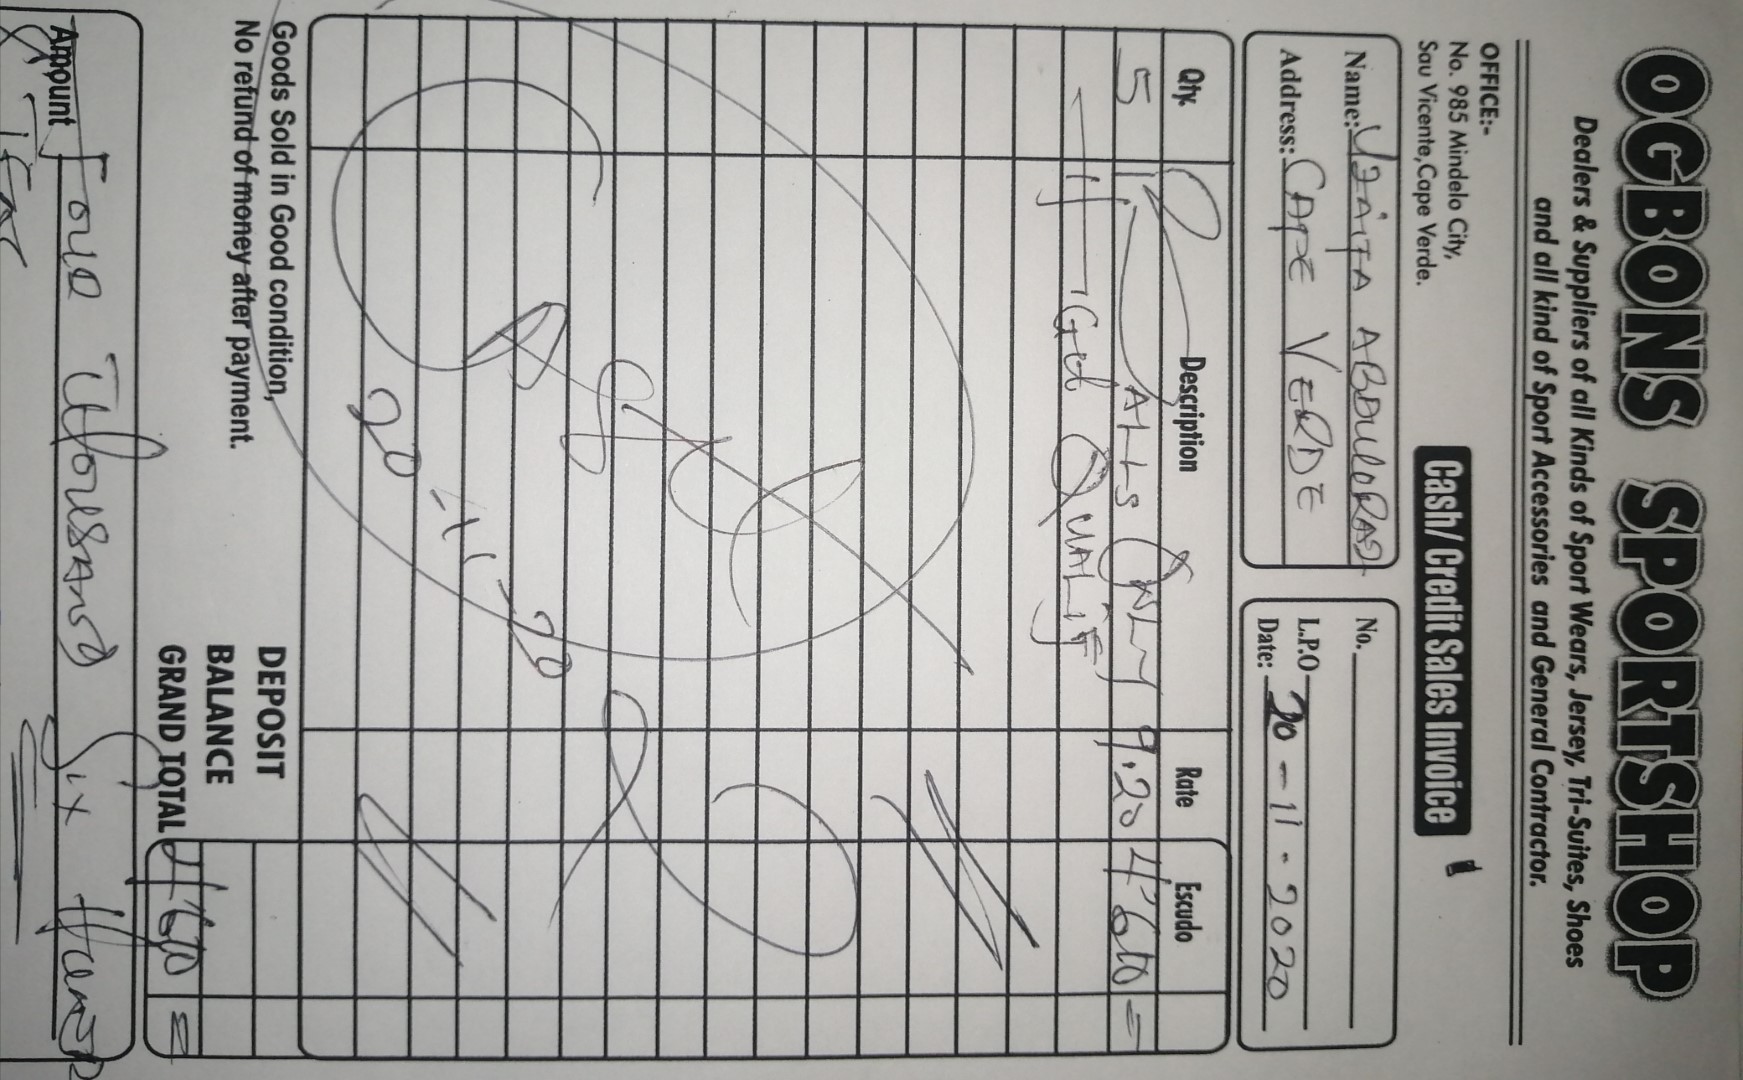 OGBONS SPORTSHOP
Dealers & Suppliers of all Kinds of Sport Wears, Jersey, Tri-Suites, Shoes
and all kind of Sport Accessories and General Contractor.
OFFICE:-
No. 985 Mindelo City,
Sau Vicente, Cape Verde.
Cash/ Credit Sales Invoice
Name:
Address: CAPE VERDE
No.
L.P.O
Date: 20-11-2020
Qty. Description Rate Escudo
5 BALLS ONLY 9.20 4'600=
QUALITY
20-11-20
Goods Sold in Good condition,
No refund of money after payment.
DEPOSIT
BALANCE
GRAND TOTAL 4'600=
Amount Four Thousand Six